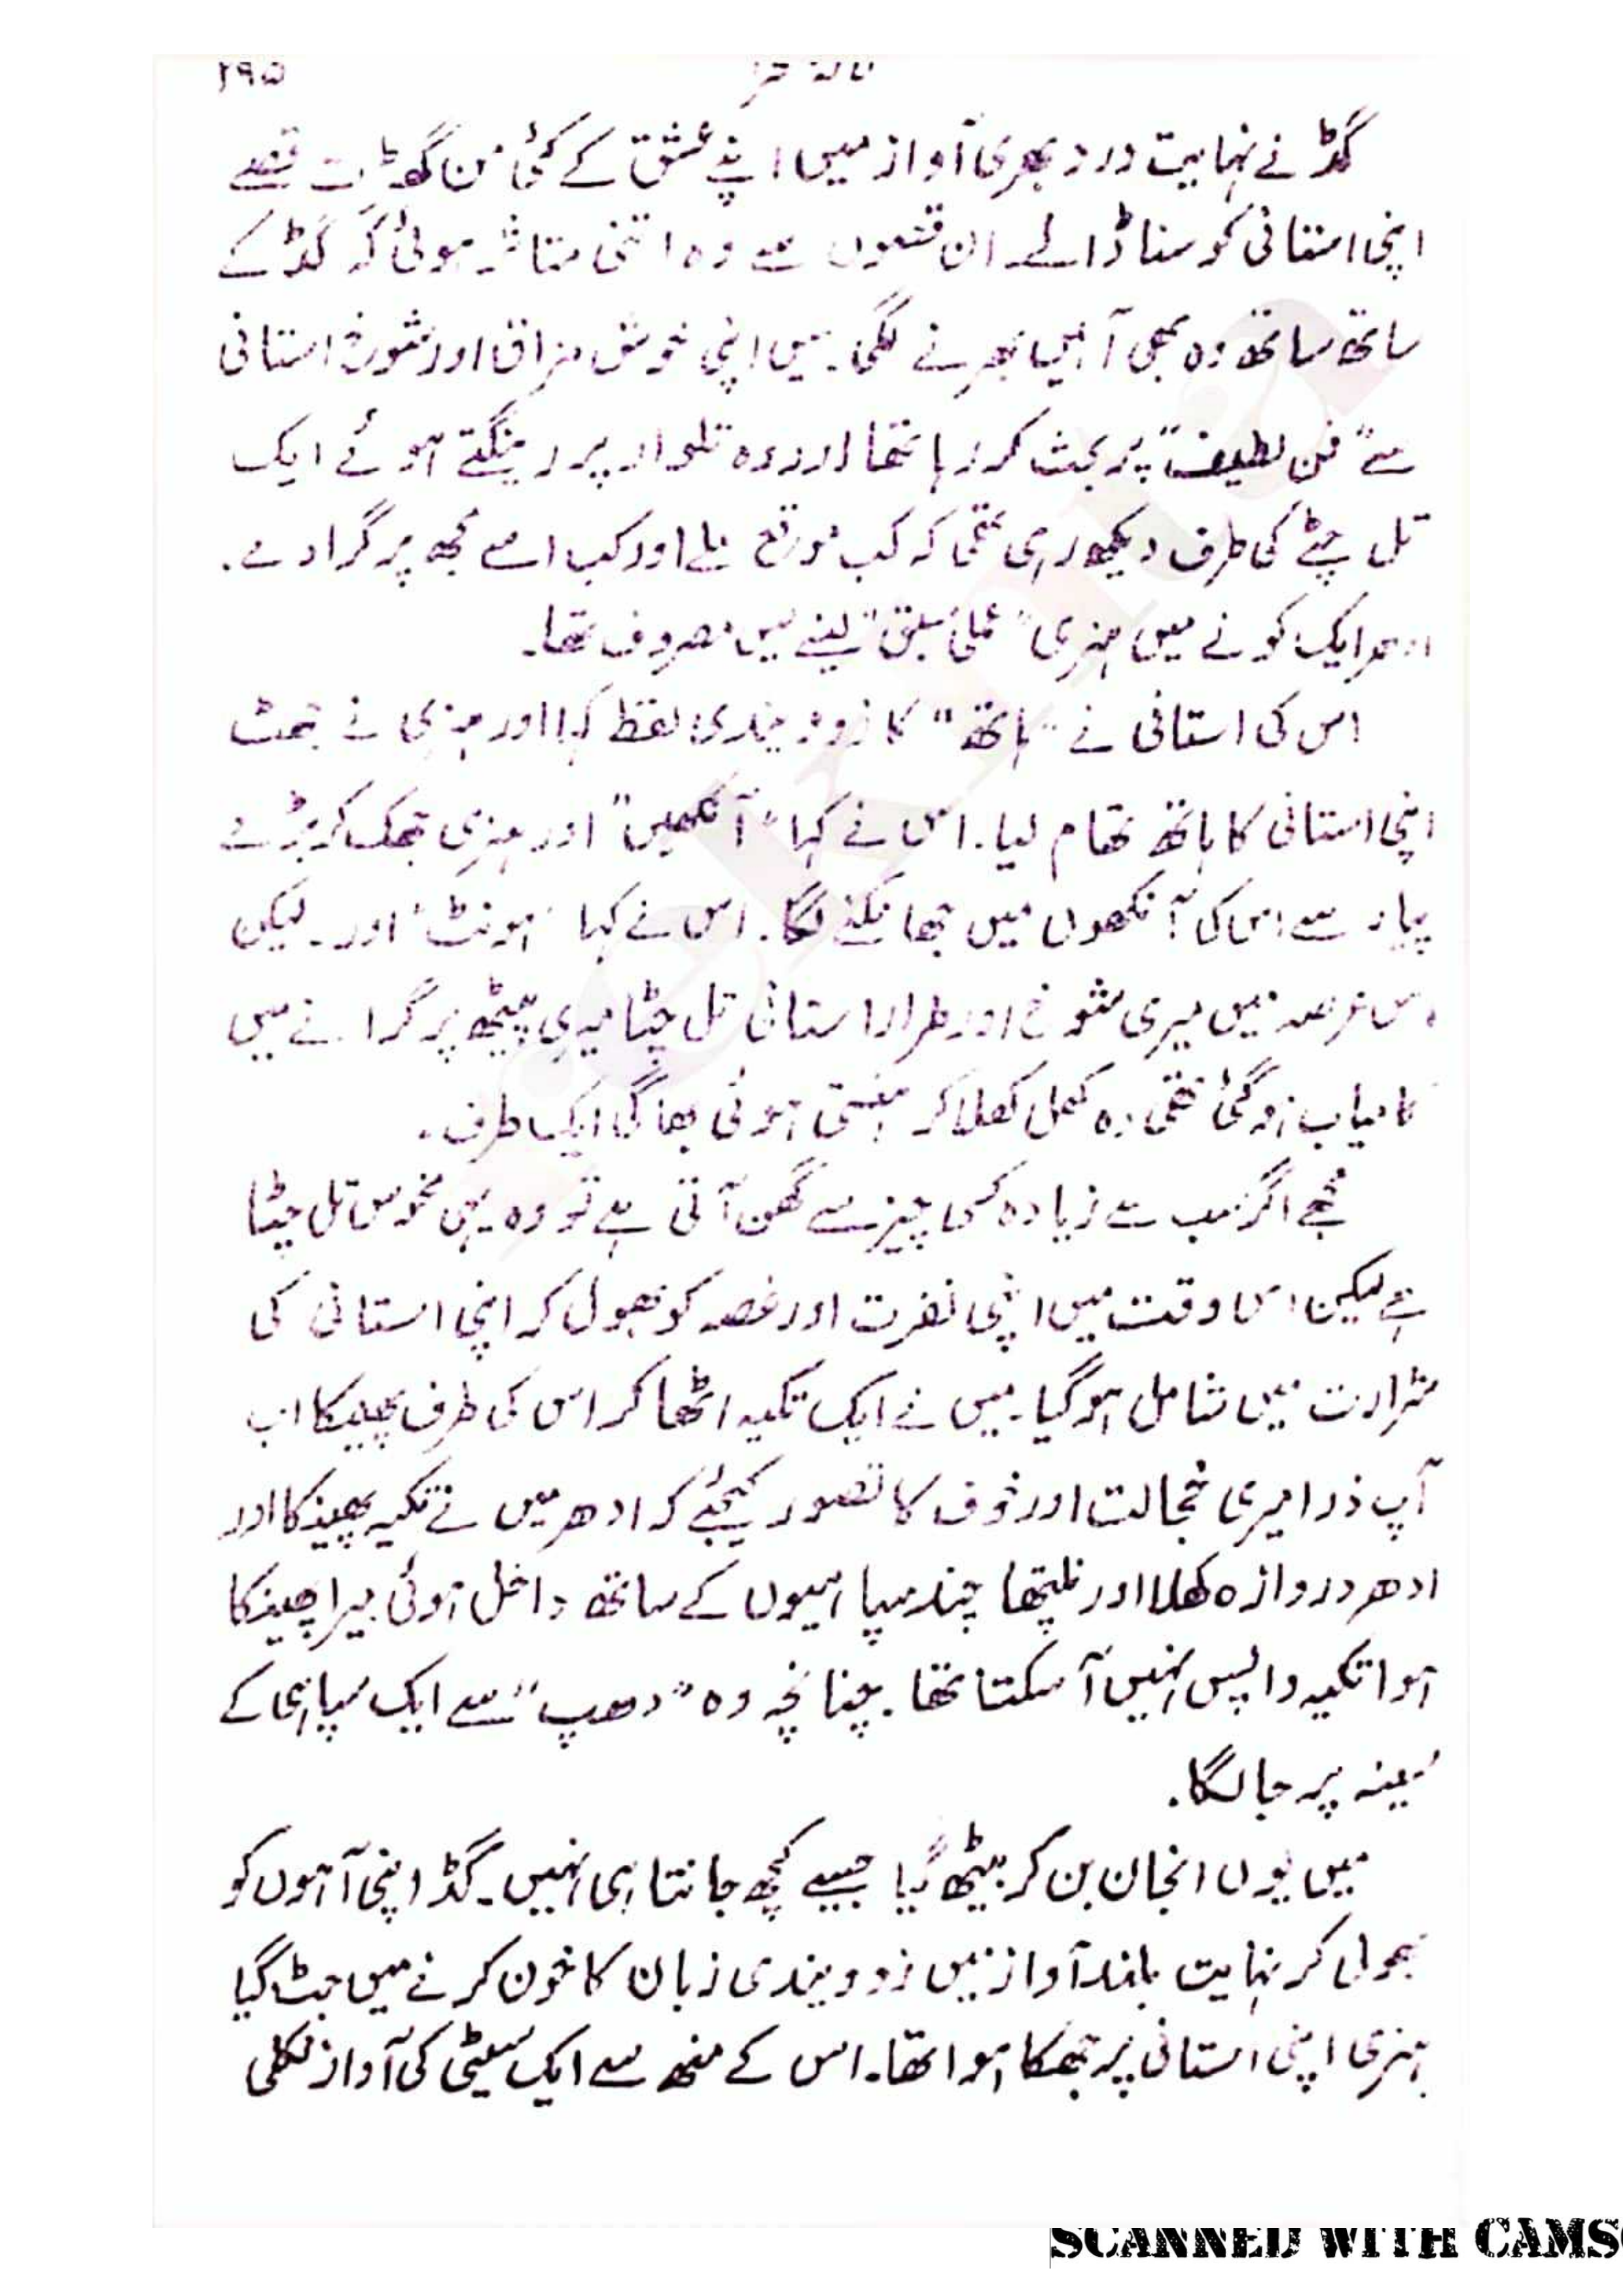 ۲۹۵
گڈ نے نہایت درد بھری آواز میں اپنے عشق کے کئی من گھڑت قصے
اپنی استانی کو سنا ڈالے۔ ان قصوں سے وہ اتنی متاثر ہوئی کہ گڈ کے
ساتھ ساتھ وہ بھی آہیں بھرنے لگی۔ میں اپنی خوش مزاق اور شوخ استانی
سے "فن لطیف" پر بحث کر رہا تھا اور وہ تلوار پر رینگتے ہوئے ایک
تل چٹے کی طرف دیکھ رہی تھی کہ کب موقع ملے اور کب اسے مجھ پر گرا دے۔
ادھر ایک کونے میں ہنری "عملی سبق" لینے میں مصروف تھا۔
اس کی استانی نے "ہاتھ" کا زوویندی لفظ کہا اور ہنری نے جھٹ
اپنی استانی کا ہاتھ تھام لیا۔ اس نے کہا "آنکھیں" اور ہنری جھک کر بڑے
پیار سے اس کی آنکھوں میں جھانکنے لگا۔ اس نے کہا "ہونٹ" اور۔ لیکن
اس عرصہ میں میری شوخ اور طرار استانی تل چٹا میری پیٹھ پر گرانے میں
کامیاب ہو گئی تھی وہ کھل کھلا کر ہنستی ہوئی بھاگی ایک طرف۔
مجھے اگر سب سے زیادہ کسی چیز سے گھن آتی ہے تو وہ یہی منحوس تل چٹا
ہے لیکن اس وقت میں اپنی نفرت اور غصہ کو بھول کر اپنی استانی کی
شرارت میں شامل ہو گیا۔ میں نے ایک تکیہ اٹھا کر اس کی طرف پھینکا اب
آپ ذرا میری خجالت اور خوف کا تصور کیجئے کہ ادھر میں نے تکیہ پھینکا اور
ادھر دروازہ کھلا اور نلپتھا چند سپاہیوں کے ساتھ داخل ہوئی میرا پھینکا
ہوا تکیہ واپس نہیں آ سکتا تھا۔ چنانچہ وہ "دھپ" سے ایک سپاہی کے
سینہ پر جا لگا۔
میں یوں انجان بن کر بیٹھ گیا جیسے کچھ جانتا ہی نہیں۔ گڈ اپنی آہوں کو
بھول کر نہایت بلند آواز میں زوویندی زبان کا خون کرنے میں جٹ گیا
ہنری اپنی استانی پر جھکا ہوا تھا۔ اس کے منھ سے ایک سیٹی کی آواز نکلی
SCANNED WITH CAMS